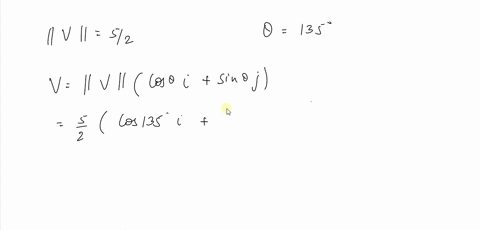 || V || = 5/2    θ = 135°
V = || V || ( cosθ i + sinθ j )
= 5/2 ( cos 135° i +